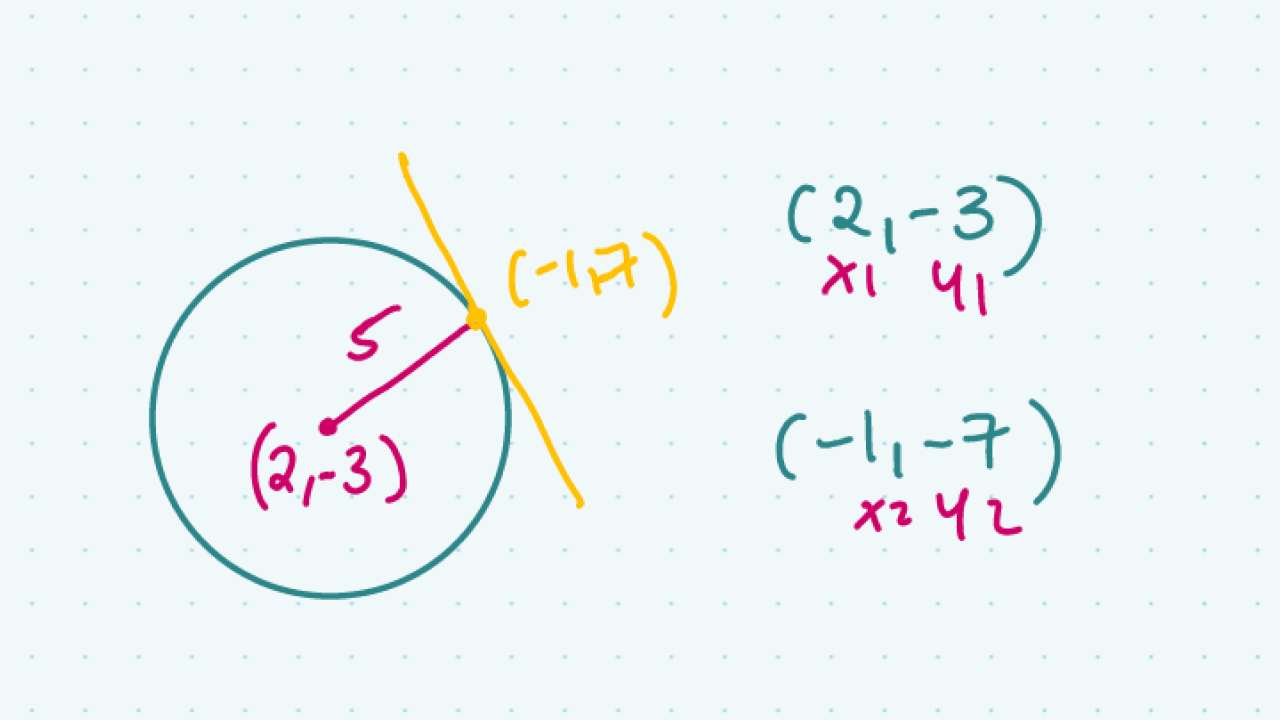 (2,-3)
x1 y1
(-1,-7)
5
(2,-3)
(-1,-7)
x2 y2